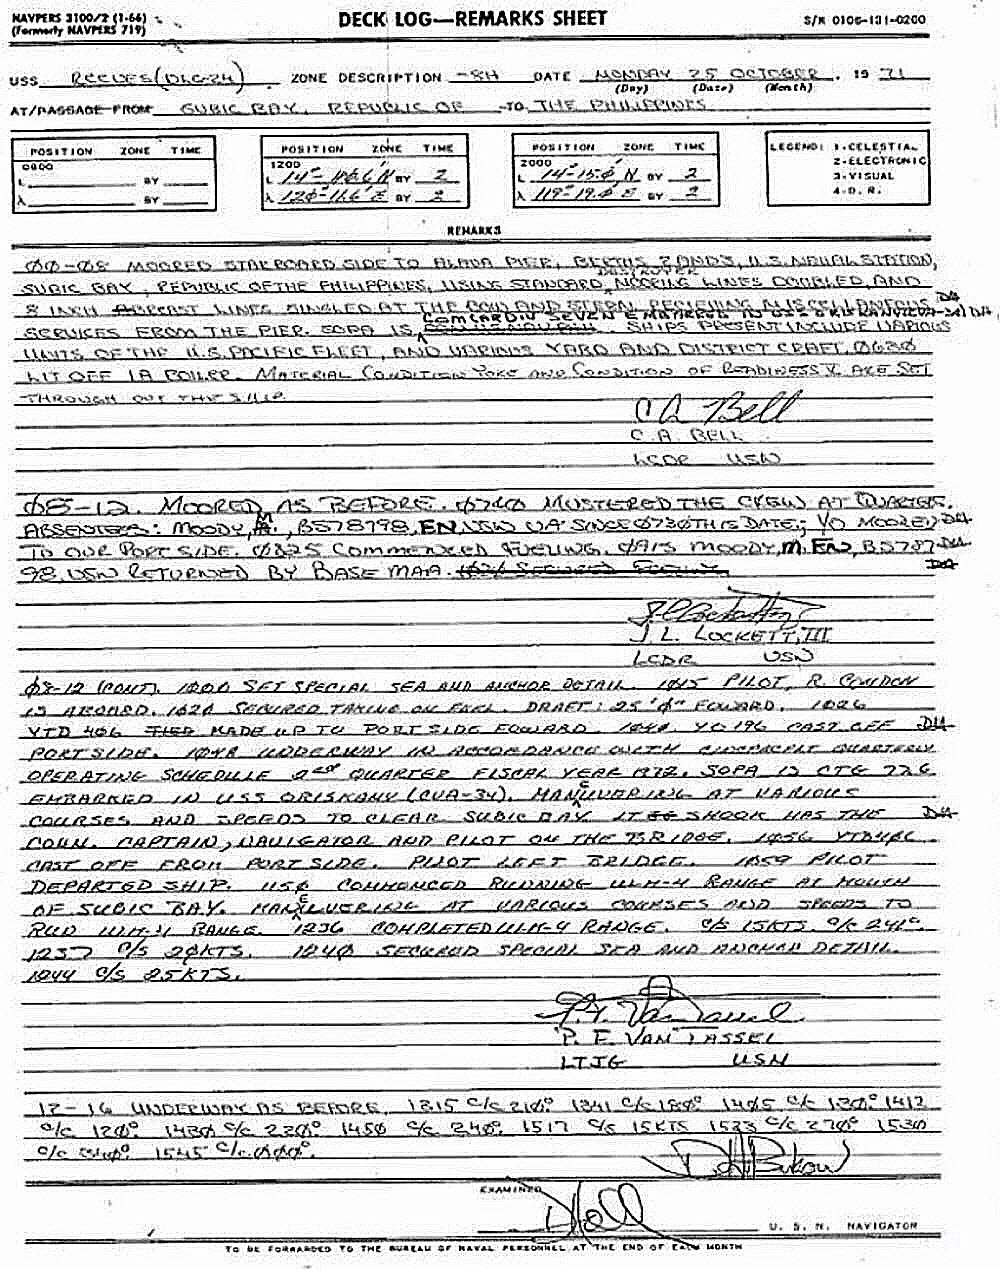 NAVPERS 3100/2 (1-66)
(Formerly NAVPERS 719)
DECK LOG—REMARKS SHEET
S/N 0106-131-0200
USS REEVES (DLG-24) ZONE DESCRIPTION -8H DATE MONDAY 25 OCTOBER, 19 71
(Day) (Date) (Month)
AT/PASSAGE FROM SUBIC BAY, REPUBLIC OF TO THE PHILIPPINES
POSITION ZONE TIME
0800
L BY
λ BY
POSITION ZONE TIME
1200
L 14°- N BY 2
λ 12Ø°-11.6' E BY 2
POSITION ZONE TIME
2000
L 14°-15.Ø' N BY 2
λ 119°-19.Ø' E BY 2
LEGEND: 1-CELESTIAL
2-ELECTRONIC
3-VISUAL
4-D. R.
REMARKS
ØØ-Ø8 MOORED STARBOARD SIDE TO ALAVA PIER, BERTHS 2 AND 3, U.S. NAVAL STATION,
SUBIC BAY, REPUBLIC OF THE PHILIPPINES, USING STANDARD DESTROYER MOORING LINES DOUBLED, AND
8 INCH LINES SINGLED AT THE BOW AND STERN. RECEIVING MISCELLANEOUS
SERVICES FROM THE PIER. SOPA IS COMCARDIV SEVEN EMBARKED IN USS ORISKANY (CVA-34). SHIPS PRESENT INCLUDE VARIOUS
UNITS OF THE U.S. PACIFIC FLEET, AND VARIOUS YARD AND DISTRICT CRAFT. Ø63Ø
LIT OFF 1A BOILER. MATERIAL CONDITION YOKE AND CONDITION OF READINESS V ARE SET
THROUGH OUT THE SHIP.
C A Bell
C. A. BELL
LCDR USN
Ø8-12. MOORED AS BEFORE. Ø74Ø MUSTERED THE CREW AT QUARTERS.
ABSENTEES: MOODY, M., B578798, EN, USN UA SINCE Ø73Ø THIS DATE; YO MOORED
TO OUR PORT SIDE. Ø825 COMMENCED FUELING. Ø915 MOODY, M. EN, B5787
98 USN RETURNED BY BASE MAA. 1020 SECURED FUELING.
J. L. LOCKETT, III
LCDR USN
Ø8-12 (CONT). 1ØØØ SET SPECIAL SEA AND ANCHOR DETAIL. 1Ø15 PILOT, R. CONDON
IS ABOARD. 1Ø2Ø SECURED TAKING ON FUEL. DRAFT: 25'Ø" FOWARD. 1Ø26
YTB 406 TIED MADE UP TO PORT SIDE FOWARD. 1Ø4Ø YO 196 CAST OFF
PORT SIDE. 1Ø48 UNDERWAY IN ACCORDANCE WITH CINCPACFLT QUARTERLY
OPERATING SCHEDULE 2ND QUARTER FISCAL YEAR 1972. SOPA IS CTG 77.6
EMBARKED IN USS ORISKANY (CVA-34). MANEUVERING AT VARIOUS
COURSES AND SPEEDS TO CLEAR SUBIC BAY. SHOOK HAS THE
CONN. CAPTAIN, NAVIGATOR AND PILOT ON THE BRIDGE. 1Ø56
CAST OFF FROM PORT SIDE. PILOT LEFT BRIDGE. 1Ø59 PILOT
DEPARTED SHIP. 115Ø COMMENCED RUNNING WLM-4 RANGE AT MOUTH
OF SUBIC BAY. MANEUVERING AT VARIOUS COURSES AND SPEEDS TO
RUN WLM-4 RANGE. 1236 COMPLETED WLM-4 RANGE. C/S 15KTS. C/C 241°.
1237 C/S 2ØKTS. 124Ø SECURED SPECIAL SEA AND ANCHOR DETAIL.
1244 C/S 25KTS.
P. E. VAN TASSEL
LTJG USN
12-16 UNDERWAY AS BEFORE. 1315 C/C 21Ø°. 1341 C/C 18Ø°. 14Ø5 C/C 13Ø°. 1412
C/C 12Ø°. 143Ø C/C 23Ø°. 145Ø C/C 24Ø°. 1517 C/S 15KTS 1523 C/C 27Ø°. 153Ø
C/C 1545 C/C ØØØ°.
EXAMINED
U. S. N. NAVIGATOR
TO BE FORWARDED TO THE BUREAU OF NAVAL PERSONNEL AT THE END OF EACH MONTH